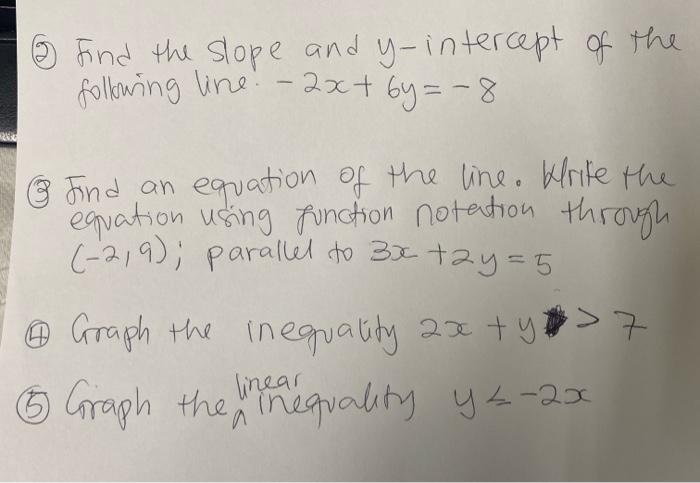 ② Find the slope and y-intercept of the
following line. -2x + 6y = -8
③ Find an equation of the line. Write the
equation using function notation through
(-2,9); parallel to 3x + 2y = 5
④ Graph the inequality 2x + y > 7
⑤ Graph the ^ linear inequality y ≤ -2x